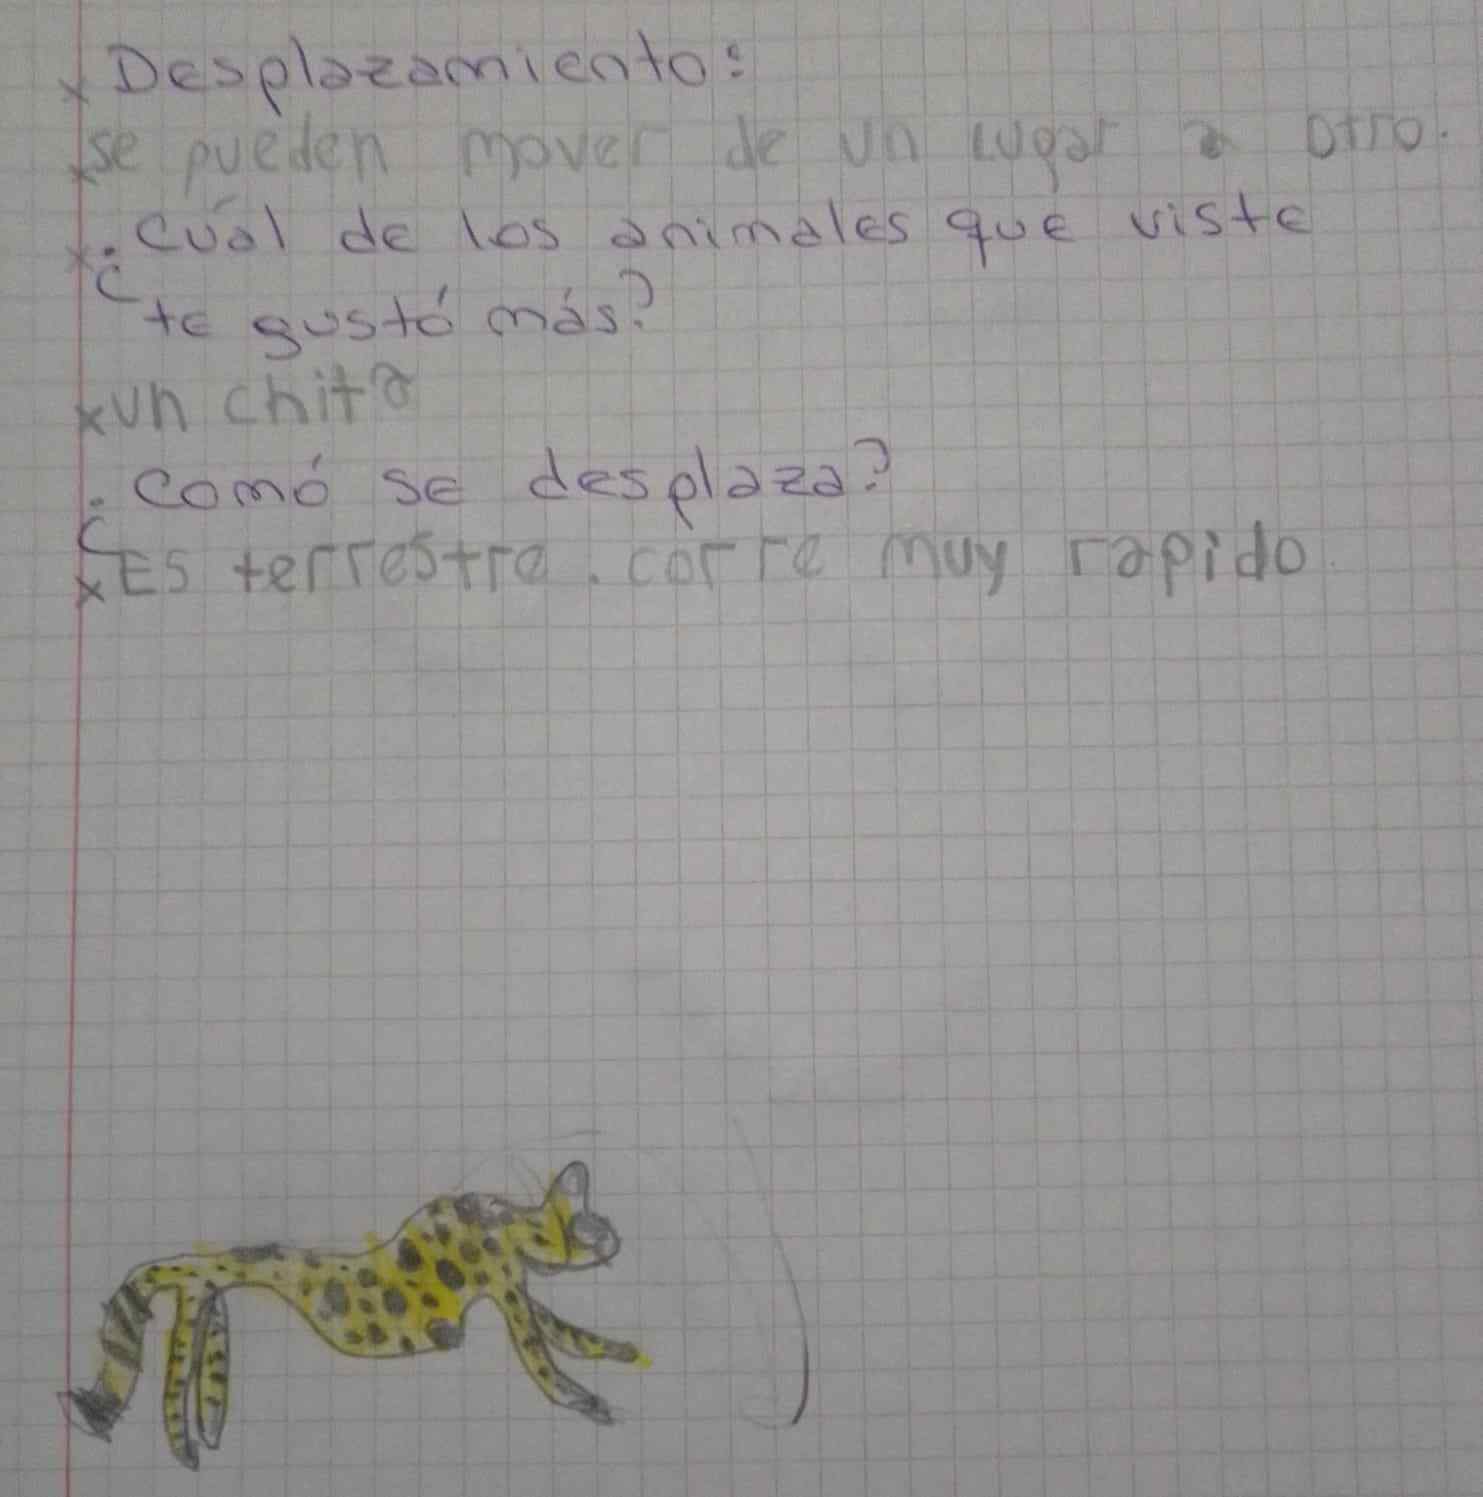 x Desplazamiento:
x se pueden mover de un lugar a otro.
x ¿Cuál de los animales que viste
te gustó más?
x un chita
¿Comó se desplaza?
x Es terrestre. corre muy rapido.